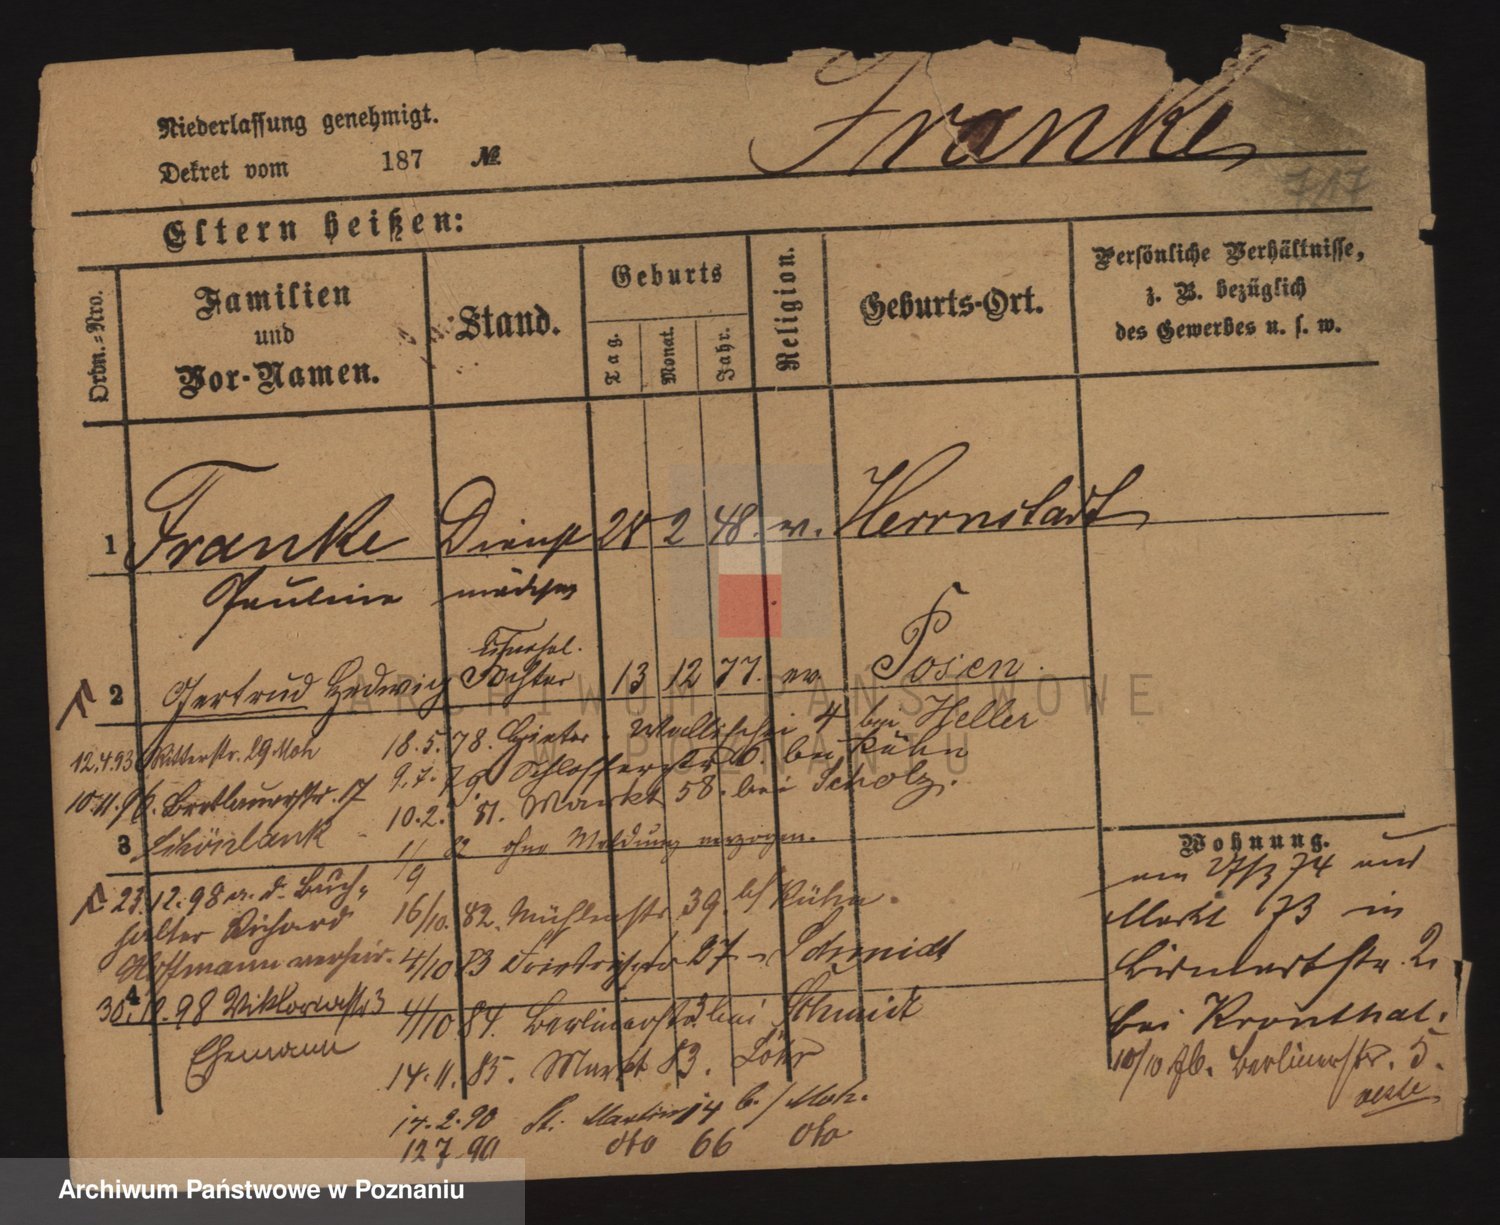 Niederlassung genehmigt.
Dekret vom 187 №
Franke
717
Eltern heißen:
Ordn.-Nro.
Familien
und
Vor-Namen.
Stand.
Geburts
Tag.
Monat.
Jahr.
Religion.
Geburts-Ort.
Persönliche Verhältnisse,
z. B. bezüglich
des Gewerbes u. s. w.
1 Franke Dienst 28 2 48. ev. Herrnstadt
Pauline mädchen
2 Gertrud Hedwig Tochter 13 12 77. ev Posen.
12.4.93 Ritterstr. 29 Moh
10.11.96. Breslauerstr.
3 Schönlank
23.12.98 a. d. Buch-
halter Richard
Hoffmann verheir.
4
30.12.98 Viktoriastr 3
Ehemann
18.5.78. Wallischei 4 bei Heller
9.7.79. Schlosserstr 6. bei Kühn
10.2.81. Markt 58. bei Scholz.
1/9 82 ohne Meldung verzogen.
16/10. 82. Mühlenstr 39. b/ Kühn.
4/10 83 27 - Schmidt
4/10 84. Berlinerstr bei Schmidt
14.11.85. Markt 83. Löhr
14.2.90 St. Martin 14 b./ Moh.
12 7 90 dto 66 dto
Wohnung.
74 und
Markt 73 in
Bismarckstr. 2.
bei Kronthal.
10/10 76. Berlinerstr. 5.
Archiwum Państwowe w Poznaniu
ARCHIWUM PAŃSTWOWE
W POZNANIU